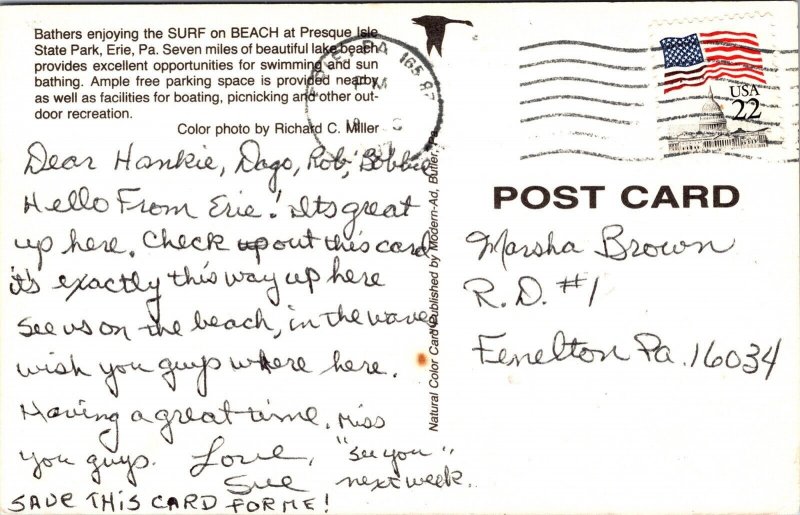 Bathers enjoying the SURF on BEACH at Presque Isle
State Park, Erie, Pa. Seven miles of beautiful lake beach
provides excellent opportunities for swimming and sun
bathing. Ample free parking space is provided nearby
as well as facilities for boating, picnicking and other out-
door recreation.
Color photo by Richard C. Miller
Dear Hankie, Dago, Rob, Bobbie
Hello From Erie! Its great
up here. Check up out this card
it's exactly this way up here
See us on the beach, in the waves
wish you guys where here.
Having a great time. Miss
you guys. Love, "See you"
Sue next week.
SAVE THIS CARD FOR ME!
Natural Color Card Published by Modern-Ad, Butler, Pa.
PA 165 87
PM
USA
22
POST CARD
Marsha Brown
R.D. #1
Fenelton Pa. 16034